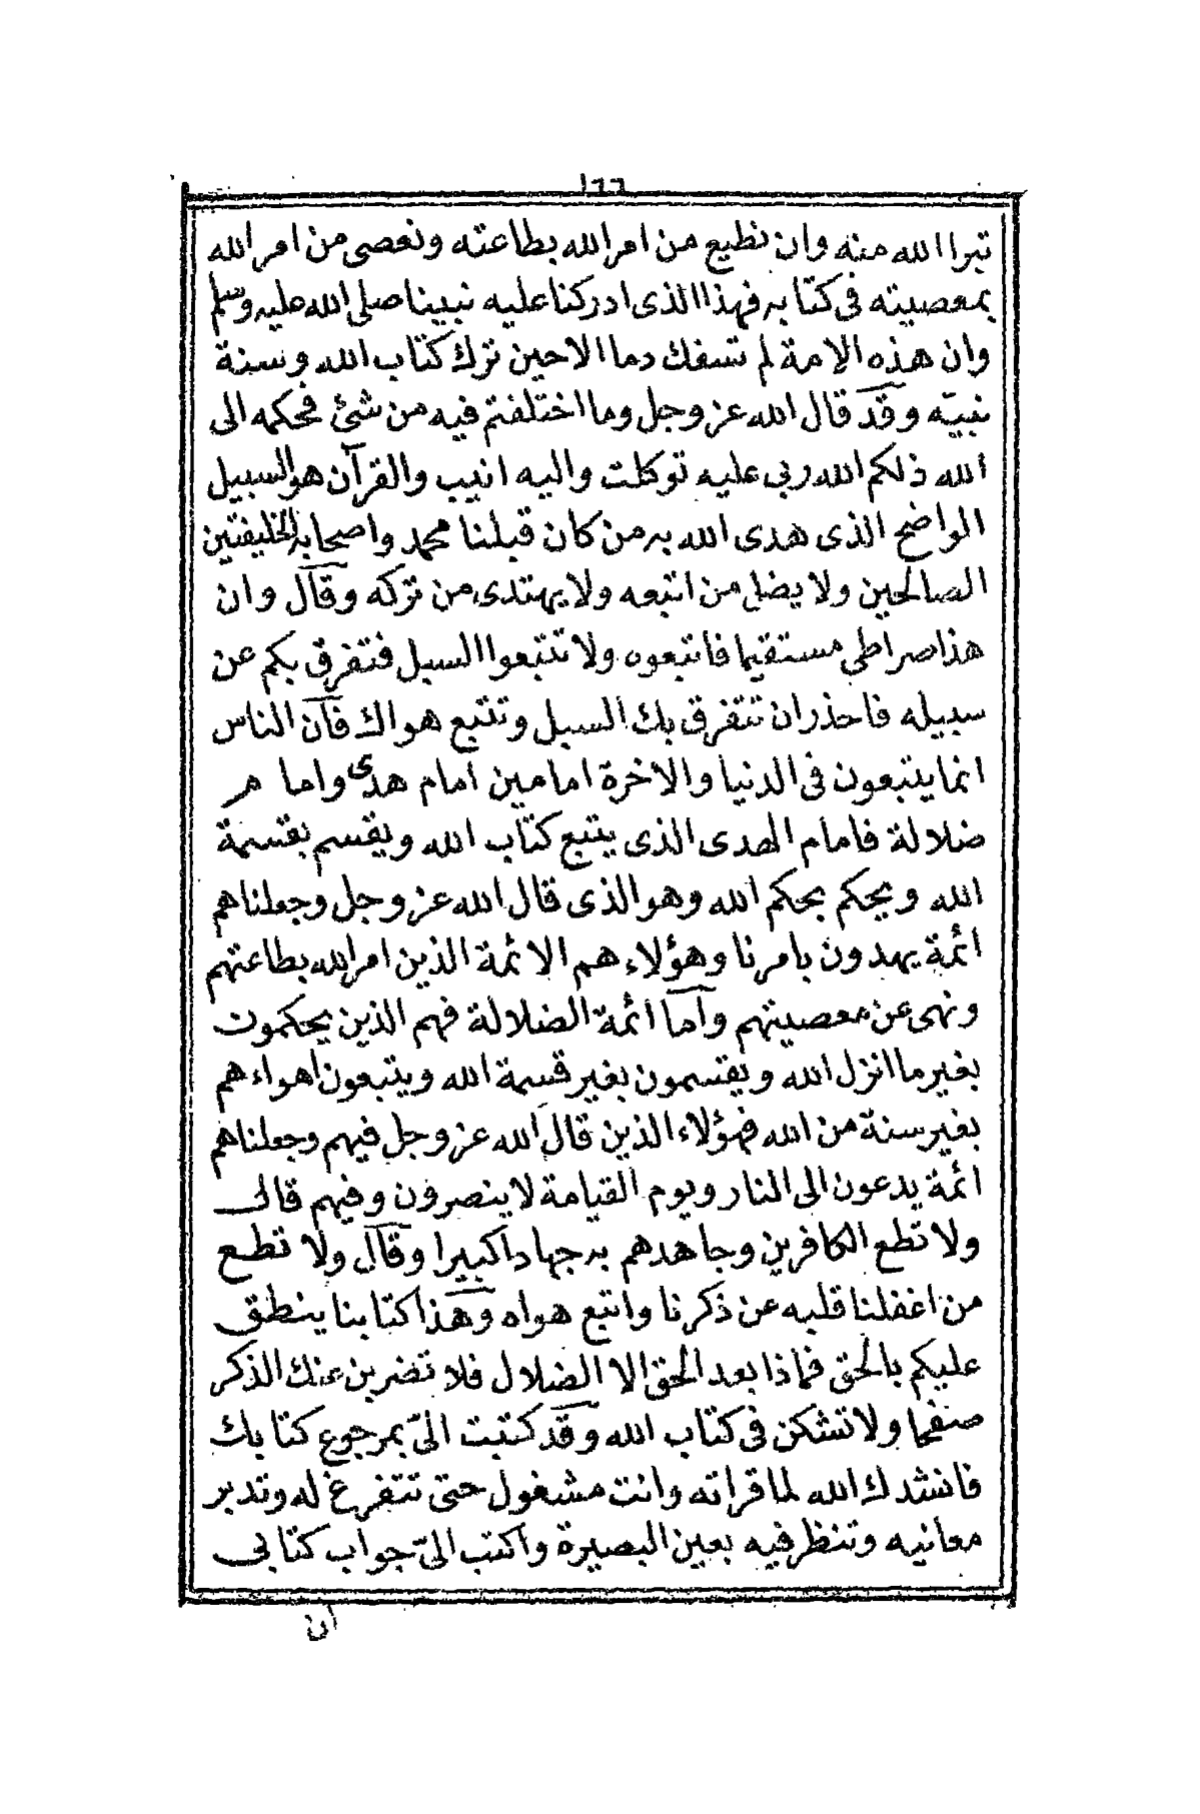 ١٦٦
تبرا الله منه وان نطيع من امر الله بطاعته ونعصى من امر الله
بمعصيته فى كتابه فهذا الذى ادركنا عليه نبينا صلى الله عليه وسلم
وان هذه الامة لم تسفك دما الا حين ترك كتاب الله وسنة
نبيّه وقد قال الله عز وجل وما اختلفتم فيه من شئ فحكمه الى
الله ذلكم الله ربى عليه توكلت واليه انيب والقرآن هو السبيل
الواضح الذى هدى الله به من كان قبلنا محمد واصحابه الخليفتين
الصالحين ولا يضل من اتبعه ولا يهتدى من تركه وقال وان
هذا صراطى مستقيما فاتبعوه ولا تتبعوا السبل فتفرق بكم عن
سبيله فاحذر ان تتفرق بك السبل وتتبع هواك فان الناس
انما يتبعون فى الدنيا والاخرة امامين امام هدى واما مر
ضلالة فامام الهدى الذى يتبع كتاب الله ويقسم بقسمة
الله ويحكم بحكم الله وهو الذى قال الله عز وجل وجعلناهم
ائمة يهدون بامرنا وهؤلاء هم الائمة الذين امر الله بطاعتهم
ونهى عن معصيتهم واما ائمة الضلالة فهم الذين يحكمون
بغير ما انزل الله ويقتسمون بغير قسمة الله ويتبعون اهواءهم
بغير سنة من الله فهؤلاء الذين قال الله عز وجل فيهم وجعلناهم
ائمة يدعون الى النار ويوم القيامة لا ينصرون وفيهم قال
ولا تطع الكافرين وجاهدهم به جهادا كبيرا وقال ولا تطع
من اغفلنا قلبه عن ذكرنا واتبع هواه وهذا كتابنا ينطق
عليكم بالحق فماذا بعد الحق الا الضلال فلا تضربن عنك الذكر
صفحا ولا تشكن فى كتاب الله وقد كتبت الىّ بمرجوع كتابك
فانشدك الله لما قراته وانت مشغول حتى تتفرغ له وتدبر
معانيه وتنظر فيه بعين البصيرة واكتب الىّ جواب كتابى
ان